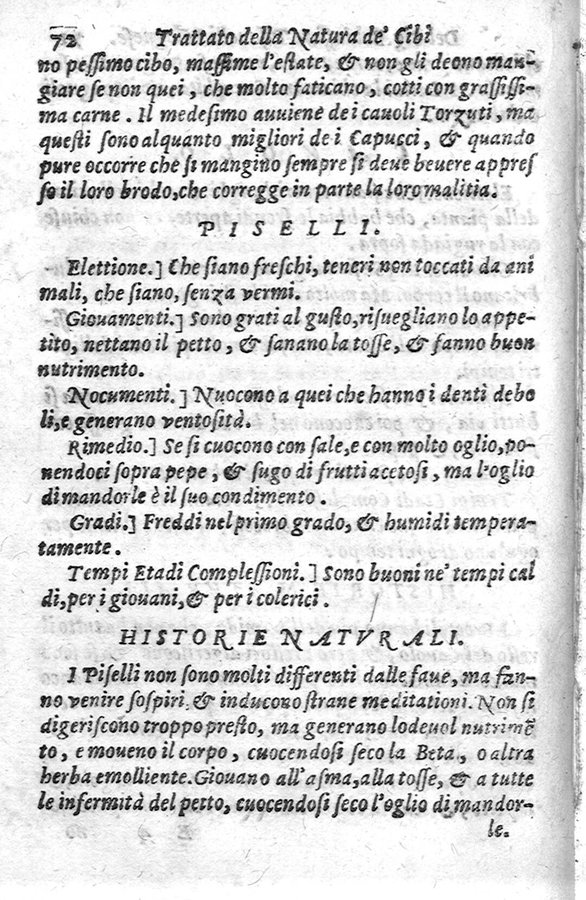 72 Trattato della Natura de' Cibi
no peſſimo cibo, maſſime l'eſtate, & non gli deono man-
giare ſe non quei, che molto faticano, cotti con graſſiſſi-
ma carne. Il medeſimo auuiene dei cauoli Torzuti, ma
queſti ſono alquanto migliori dei Capucci, & quando
pure occorre che ſi mangino ſempre ſi deue beuere appreſ
ſo il loro brodo, che corregge in parte la loro malitia.
PISELLI.
Elettione.] Che ſiano freſchi, teneri non toccati da ani
mali, che ſiano, ſenza vermi.
Giouamenti.] Sono grati al guſto, riſuegliano lo appe-
tito, nettano il petto, & ſanano la toſſe, & fanno buon
nutrimento.
Nocumenti.] Nuocono a quei che hanno i denti debo
li, e generano ventoſità.
Rimedio.] Se ſi cuocono con ſale, e con molto oglio, po-
nendoci ſopra pepe, & ſugo di frutti acetoſi, ma l'oglio
di mandorle è il ſuo condimento.
Gradi.] Freddi nel primo grado, & humidi tempera-
tamente.
Tempi Etadi Compleſſioni.] Sono buoni ne' tempi cal
di, per i giouani, & per i colerici.
HISTORIE NATVRALI.
I Piſelli non ſono molti differenti dalle faue, ma fan-
no venire ſoſpiri & inducono ſtrane meditationi. Non ſi
digeriſcono troppo preſto, ma generano lodeuol nutrimẽ
to, e moueno il corpo, cuocendoſi ſeco la Beta, o altra
herba emolliente. Giouano all'aſma, alla toſſe, & a tutte
le infermità del petto, cuocendoſi ſeco l'oglio di mandor-
le.